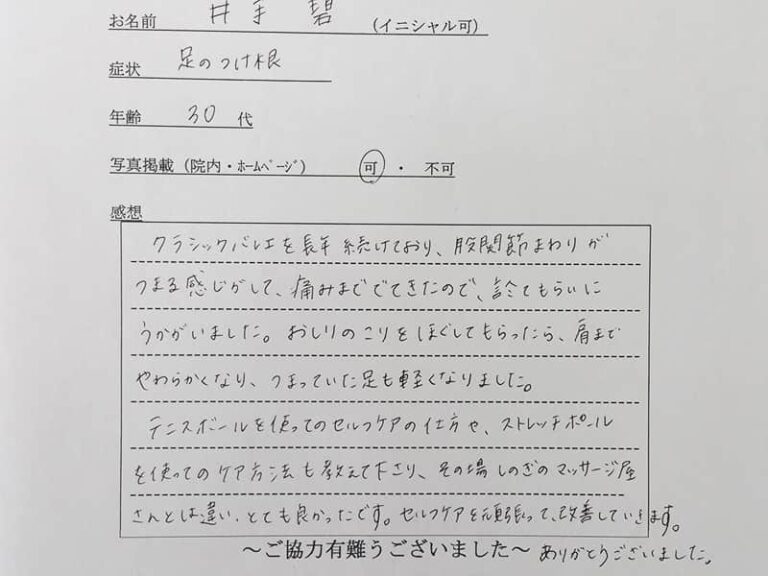 お名前 井手 碧 (イニシャル可)
症状 足のつけ根
年齢 30 代
写真掲載(院内・ホームページ) 可 ・ 不可
感想
クラシックバレエを長年続けており、股関節まわりが
つまる感じがして、痛みまででてきたので、診てもらいに
うかがいました。おしりのこりをほぐしてもらったら、肩まで
やわらかくなり、つまっていた足も軽くなりました。
テニスボールを使ってのセルフケアの仕方や、ストレッチポール
を使ってのケア方法も教えて下さり、その場しのぎのマッサージ屋
さんとは違い、とても良かったです。セルフケアを頑張って、改善していきます。
～ご協力有難うございました～ ありがとうございました。